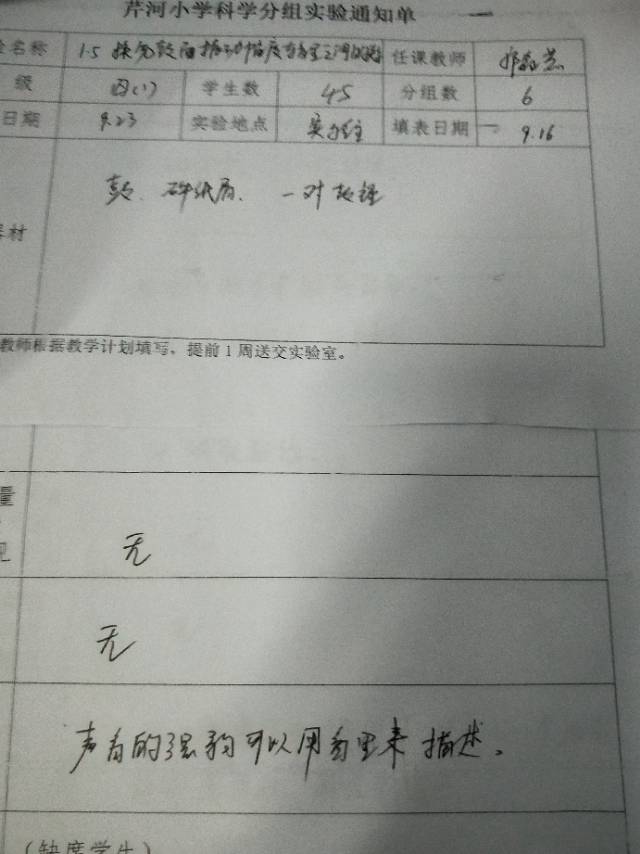 芹河小学科学分组实验通知单 一
名称 1.5 探究鼓面振动幅度与音量之间 任课教师
级 四(1) 学生数 45 分组数 6
日期 9.23 实验地点 填表日期 9.16
鼓、碎纸屑、一对鼓槌
材
教师根据教学计划填写，提前1周送交实验室。
量
无
无
声音的强弱可以用音量来描述。
(缺席学生)